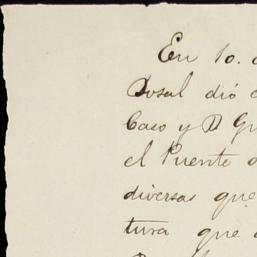 En 10. d
Dosal dió c
Caso y D Gu
el Puente d
diversas que
tura que